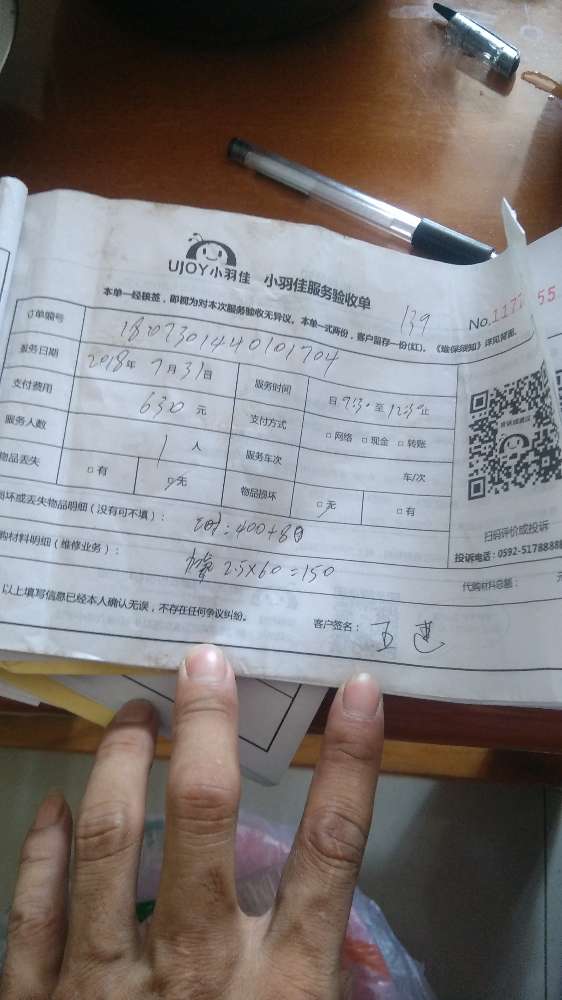 UJOY小羽佳 小羽佳服务验收单
139
No.1177 55
本单一经接签，即视为对本次服务验收无异议。本单一式两份，客户留存一份(红)。《维保须知》详见背面。
订单编号 1807301440101704
服务日期 2018年 7月31日 服务时间 自 9:30 至 12:30 止
支付费用 630 元 支付方式 □ 网络 □ 现金 □ 转账
服务人数 1 人 服务车次 车/次
物品丢失 □ 有 □ 无 物品损坏 □ 无 □ 有
损坏或丢失物品明细（没有可不填）： 400+80
购材料明细（维修业务）： 2.5×60=150
代购材料总额： 元
扫码评价或投诉
投诉电话：0592-5178888
以上填写信息已经本人确认无误，不存在任何争议纠纷。 客户签名：